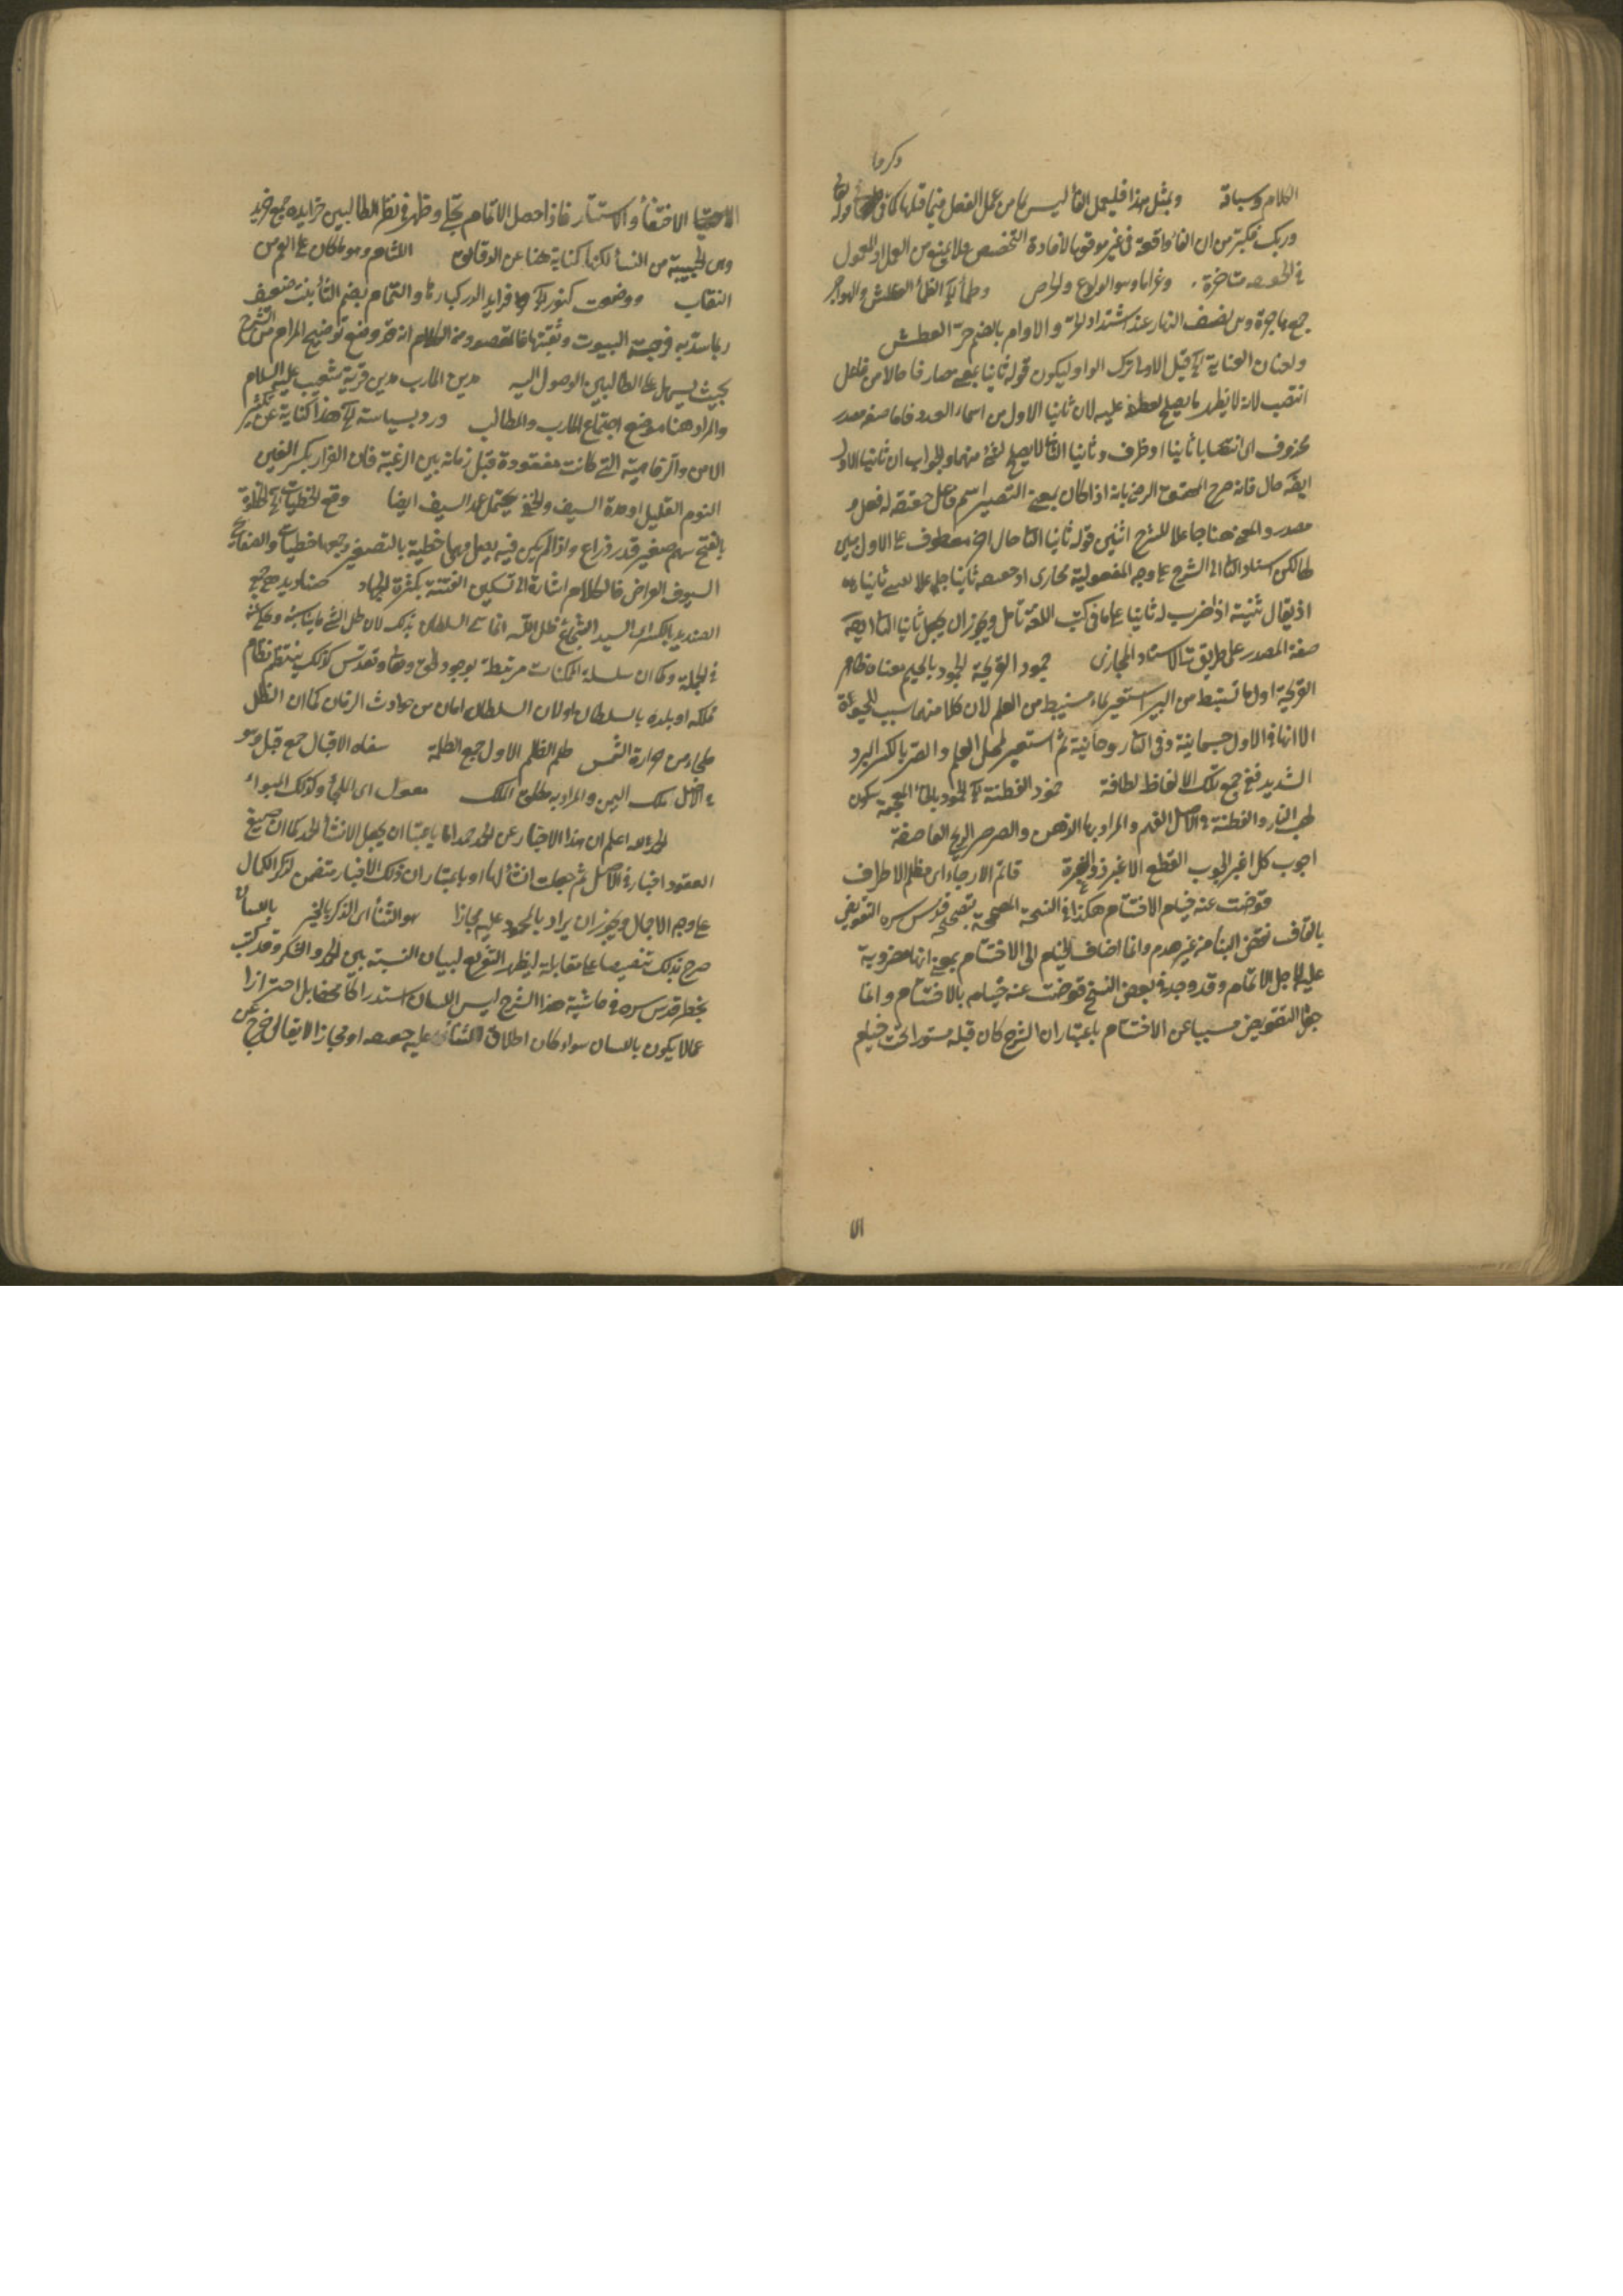 وكرما
الكلام وسباقه وبمثل هذا فليعمل الفا ليس بما من عمل الفعل فيما قبلها كما في قوله تعالى
وربك فكبر من ان الفاء واقعة في غير موقعها لافادة التخصيص فلا يمنع من العمل او المعمول
في الحقيقة متاخرة وغراما وهو الولوع والحرص وظمأ اى الظمأ العطش والهواجر
جمع هاجرة وهى نصف النهار عند اشتداد الحر والاوام بالضم حر العطش
ولعنان العناية اى قيل الاولى ترك الواو ليكون قوله ثانيا بمعنى صارفا حالا من فاعل
انتصب لانه لا يظهر ما يصلح لعطفه عليه لان ثانيا الاول من اسماء العدد فاما صفة مصدر
محذوف اى انتصابا ثانيا او ظرف وثانيا الثانى لا يصلح لشئ منهما والجواب ان ثانيا الاول
ايضا حال فانه صرح المحقق الرضى بانه اذا كان بمعنى التصيير اسم فاعل حقيقة له فعل و
مصدر والمعنى هنا جاعلا للشرح اثنين قوله ثانيا الثانى حال اخر معطوف على الاول
لكن اسناد الثانى الى الشرح على وجه المفعولية مجازى
اذ يقال ثنيته اذا ضرب له ثانيا على ما في كتب اللغة تأمل ويجوز ان يجعل ثانيا الثانى ايضا
صفة المصدر على طريق الاسناد المجازى جمود القريحة الجمود بالجيم معناه ظاهر
القريحة اول ما تستنبط من البير استعير لما يستنبط من العلم لان كلا منهما سبب للحيوة
الا انها في الاول جسمانية وفي الثانى روحانية ثم استعير لمحل العلم والصر بالكسر البرد
الشديد ففى جمع تلك الالفاظ لطافة خمود الفطنة اى الخمود بالخاء المعجمة سكون
لهب النار والفطنة في الاصل الفهم والمراد بها الذهن والصرصر الريح العاصفة
اجوب كل اغبر الجوب القطع الاغبر ذو الغبرة قاتم الارجاء اى مظلم الاطراف
قوضت عنه خيام الاختتام هكذا في النسخة المصححة بتصحيحه قدس سره التقويض
بالقاف نقض البناء من غير هدم وانما اضاف الخيام الى الاختتام بمعنى انها مضروبة
عليه لاجل الاتمام وقد وجد في بعض النسخ قوضت عنه خيام بالاختتام وانما
جعل التقويض مسببا عن الاختتام باعتبار ان الشرح كان قبله مستورا تحت خيام
الا
الاختفاء والاستتار فاذا حصل الاتمام تجلى وظهر في نظر الطالبين خرايده جمع خريدة
وهى الحبيبة من النساء لكنها كناية هنا عن الدقائق اللثام وهو ما كان على الفم من
النقاب ووضعت كنوز فرايد الدر كبارها والثمام بضم الثاء نبت ضعيف
ربما سد به فرجة البيوت وثقبتها فالمقصود من الكلام انه قد وضع توضيح المرام من الشرح
بحيث يسهل على الطالبين الوصول اليه مدين المارب مدين قرية شعيب عليه السلام
والمراد هنا موضع اجتماع المارب والمطالب ورد بسياسته اى هذا كناية عن تكثير
الامن والرفاهية التى كانت مفقودة قبل زمانه بين الرغبة فان الغرار بكسر الغين
النوم القليل او حدة السيف والجفن يحتمل غمد السيف ايضا وقع الخطيات اى الخطوة
بالفتح سهم صغير قدر ذراع واذا لم يكن فيه نصل فهى خطية بالتصغير وجمعها خطيات والصفايح
السيوف العراض فالكلام اشارة الى تسكين الفتنة بكثرة الجهاد صناديد هى جمع
الصنديد بالكسر اى السيد الشجاع ظل الله انما سمى السلطان بذلك لان ظل الشئ ما يناسبه ويحاكيه
في الجملة وكما ان سلسلة الممكنات مرتبطة بوجود الحق وتقدس كذلك ينتظم نظام
مملكة او بلدة بالسلطان او لان السلطان امان من حوادث الزمان كما ان الظل
ملجاء من حرارة الشمس ظلم الظلم الاول جمع الظلمة الاقبال جمع قيل وهو
في الاصل ملك اليمن والمراد به مطلق الملك معول اى الملجأ وكذلك المبواء
الحمد لله اعلم ان هذا الاخبار عن الحمد حمد اما باعتبار ان يجعل لانشاء الحمد كما ان صيغ
العقود اخبار في الاصل ثم جعلت انشاء لها او باعتبار ان ذلك الاخبار متضمن لذكر الكمال
على وجه الاجمال ويجوز ان يراد بالحمد المحمود عليه مجازا هو الثناء اى الذكر بالخير باللسان
صرح بذلك تنصيصا على مقابله ليظهر التفريع لبيان النسبة بين الحمد والشكر وقد كتب
بخطه قدس سره في حاشية هذا الشرح ليس اللسان استدراكا في مقابل احترازا
عما لا يكون باللسان سواء كان اطلاق الثناء عليه حقيقة او مجازا لا يقال خرج عن